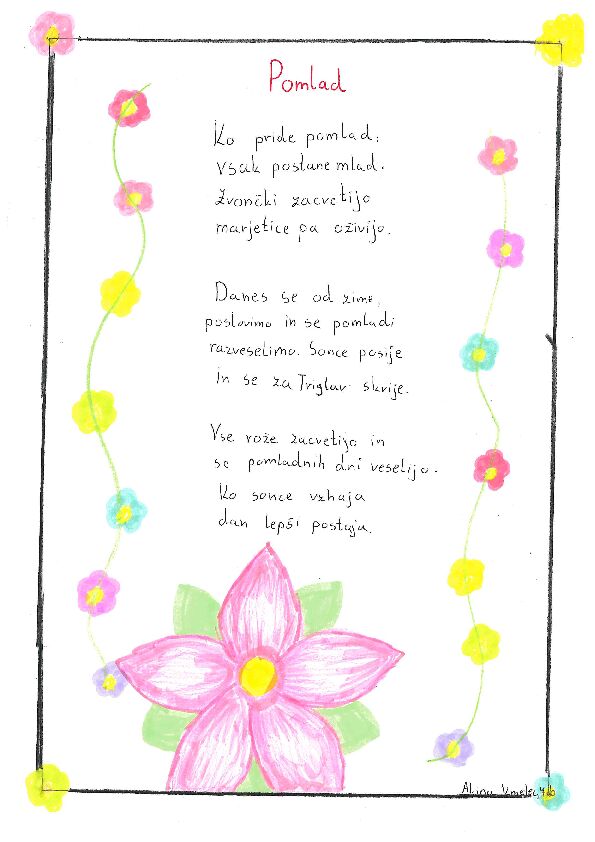 Pomlad
Ko pride pomlad,
vsak postane mlad.
Zvončki zacvetijo
marjetice pa oživijo.
Danes se od zime,
poslovimo in se pomladi
razveselimo. Sonce posije
in se za Triglav skrije.
Vse rože zacvetijo in
se pomladnih dni veselijo.
Ko sonce vzhaja
dan lepši postaja.